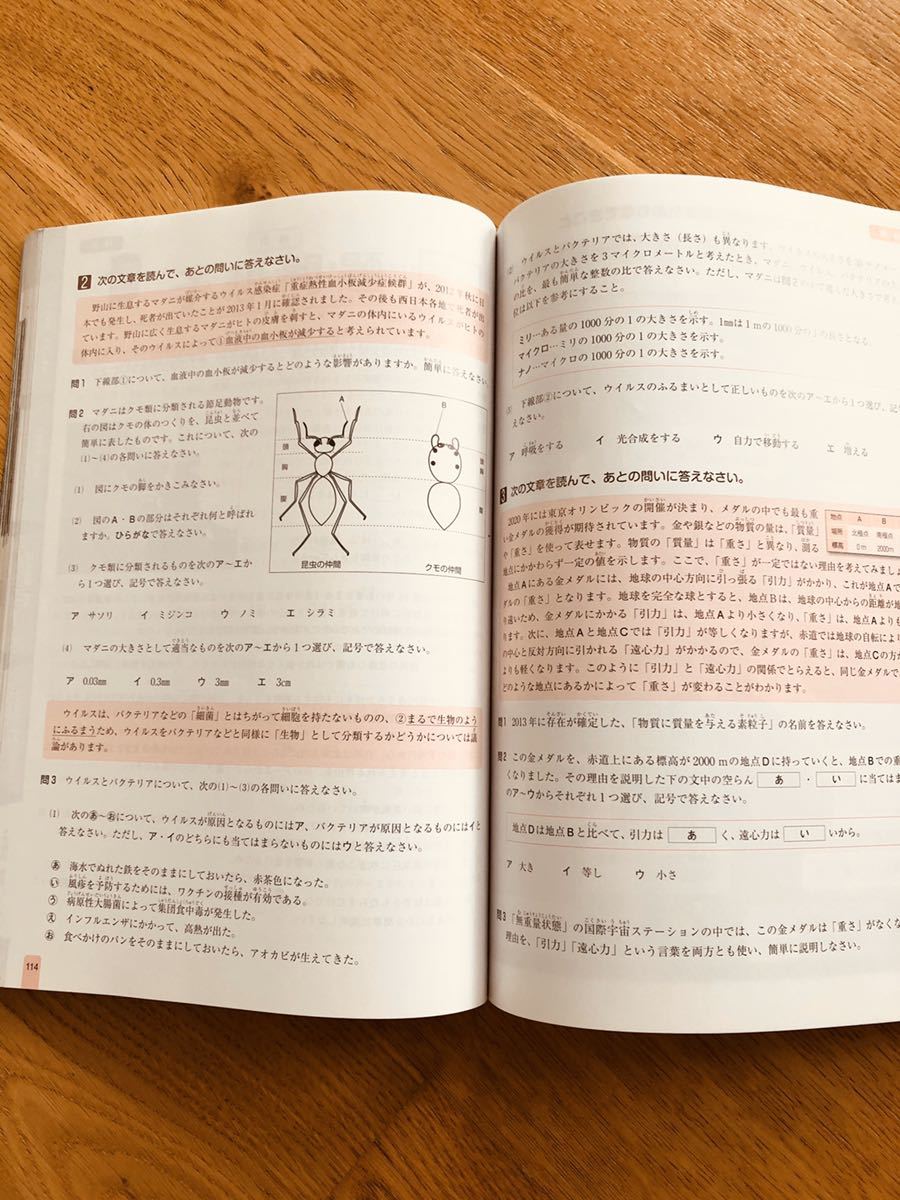 2 次の文章を読んで、あとの問いに答えなさい。
野山に生息するマダニが媒介するウイルス感染症「重症熱性血小板減少症候群」が、2012年秋に日
本でも発生し、死者が出ていたことが2013年1月に確認されました。その後も西日本各地で死者が出
ています。野山に広く生息するマダニがヒトの皮膚を刺すと、マダニの体内にいるウイルスがヒトの
体内に入り、そのウイルスによって①血液中の血小板が減少すると考えられています。
問1 下線部①について、血液中の血小板が減少するとどのような影響がありますか。簡単に答えなさい。
問2 マダニはクモ類に分類される節足動物です。
右の図はクモの体のつくりを、昆虫と並べて
簡単に表したものです。これについて、次の
(1)~(4)の各問いに答えなさい。
(1) 図にクモの脚をかきこみなさい。
(2) 図のA・Bの部分はそれぞれ何と呼ばれ
ますか。ひらがなで答えなさい。
(3) クモ類に分類されるものを次のア~エか
ら1つ選び、記号で答えなさい。
A
B
頭
胸
腹
頭
胸
腹
昆虫の仲間
クモの仲間
ア サソリ イ ミジンコ ウ ノミ エ シラミ
(4) マダニの大きさとして適当なものを次のア~エから1つ選び、記号で答えなさい。
ア 0.03mm イ 0.3mm ウ 3mm エ 3cm
ウイルスは、バクテリアなどの「細菌」とはちがって細胞を持たないものの、②まるで生物のよう
にふるまうため、ウイルスをバクテリアなどと同様に「生物」として分類するかどうかについては議
論があります。
問3 ウイルスとバクテリアについて、次の(1)~(3)の各問いに答えなさい。
(1) 次のあ~おについて、ウイルスが原因となるものにはア、バクテリアが原因となるものにはイと
答えなさい。ただし、ア・イのどちらにも当てはまらないものにはウと答えなさい。
あ 海水でぬれた鉄をそのままにしておいたら、赤茶色になった。
い 風疹を予防するためには、ワクチンの接種が有効である。
う 病原性大腸菌によって集団食中毒が発生した。
え インフルエンザにかかって、高熱が出た。
お 食べかけのパンをそのままにしておいたら、アオカビが生えてきた。
114
ウイルスとバクテリアでは、大きさ(長さ)も異なります。
バクテリアの大きさを3マイクロメートルと考えたとき、マダニ
の比を、最も簡単な整数の比で答えなさい。ただし、マダニは問2の
位は以下を参考にすること。
ミリ…ある量の1000分の1の大きさを示す。1mmは1mの1000分の1の長さとなる
マイクロ…ミリの1000分の1の大きさを示す。
ナノ…マイクロの1000分の1の大きさを示す。
下線部②について、ウイルスのふるまいとして正しいものを次のア~エから1つ選び、記
えなさい。
ア 呼吸をする イ 光合成をする ウ 自力で移動する エ 増える
3 次の文章を読んで、あとの問いに答えなさい。
2020年には東京オリンピックの開催が決まり、メダルの中でも最も重
い金メダルの獲得が期待されています。金や銀などの物質の量は、「質量」
や「重さ」を使って表せます。物質の「質量」は「重さ」と異なり、測る
地点にかかわらず一定の値を示します。ここで、「重さ」が一定ではない理由を考えてみましょ
地点 A B
場所 北極点 南極点
標高 0m 2000m
地点Aにある金メダルには、地球の中心方向に引っ張る「引力」がかかり、これが地点Aで
ダルの「重さ」となります。地球を完全な球とすると、地点Bは、地球の中心からの距離が地
り遠いため、金メダルにかかる「引力」は、地点Aより小さくなり、「重さ」は、地点Aよりも
ります。次に、地点Aと地点Cでは「引力」が等しくなりますが、赤道では地球の自転により
の中心と反対方向に引かれる「遠心力」がかかるので、金メダルの「重さ」は、地点Cの方が
よりも軽くなります。このように「引力」と「遠心力」の関係でとらえると、同じ金メダルで
どのような地点にあるかによって「重さ」が変わることがわかります。
問1 2013年に存在が確定した、「物質に質量を与える素粒子」の名前を答えなさい。
問2 この金メダルを、赤道上にある標高が2000mの地点Dに持っていくと、地点Bでの重
くなりました。その理由を説明した下の文中の空らん あ・い に当てはま
のア~ウからそれぞれ1つ選び、記号で答えなさい。
地点Dは地点Bと比べて、引力は あ く、遠心力は い いから。
ア 大き イ 等し ウ 小さ
問3 「無重量状態」の国際宇宙ステーションの中では、この金メダルは「重さ」がなくな
理由を、「引力」「遠心力」という言葉を両方とも使い、簡単に説明しなさい。